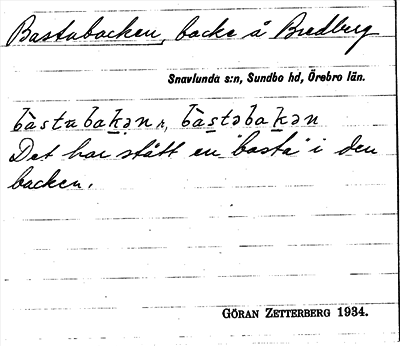 Bastubacken, backe å Bredberg
Snavlunda s:n, Sundbo hd, Örebro län.
bàstubak̠ən r, bàstəbak̠ən
Det har stått en "basta" i den
backen.
GÖRAN ZETTERBERG 1934.